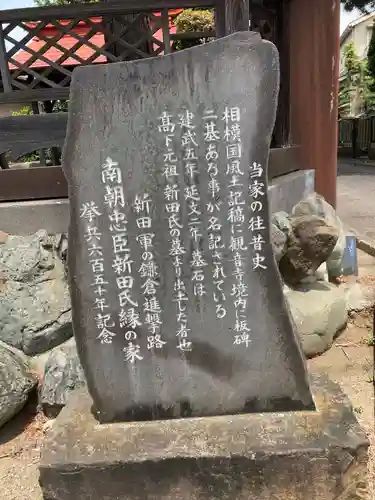 当家の往昔史
相模国風土記稿に観音寺境内に板碑
二基ある事が名記されている
建武五年延文二年の墓石は
高下元祖新田氏の墓より出土た者也
新田軍の鎌倉進撃路
南朝忠臣新田氏縁の家
挙兵六百五十年記念